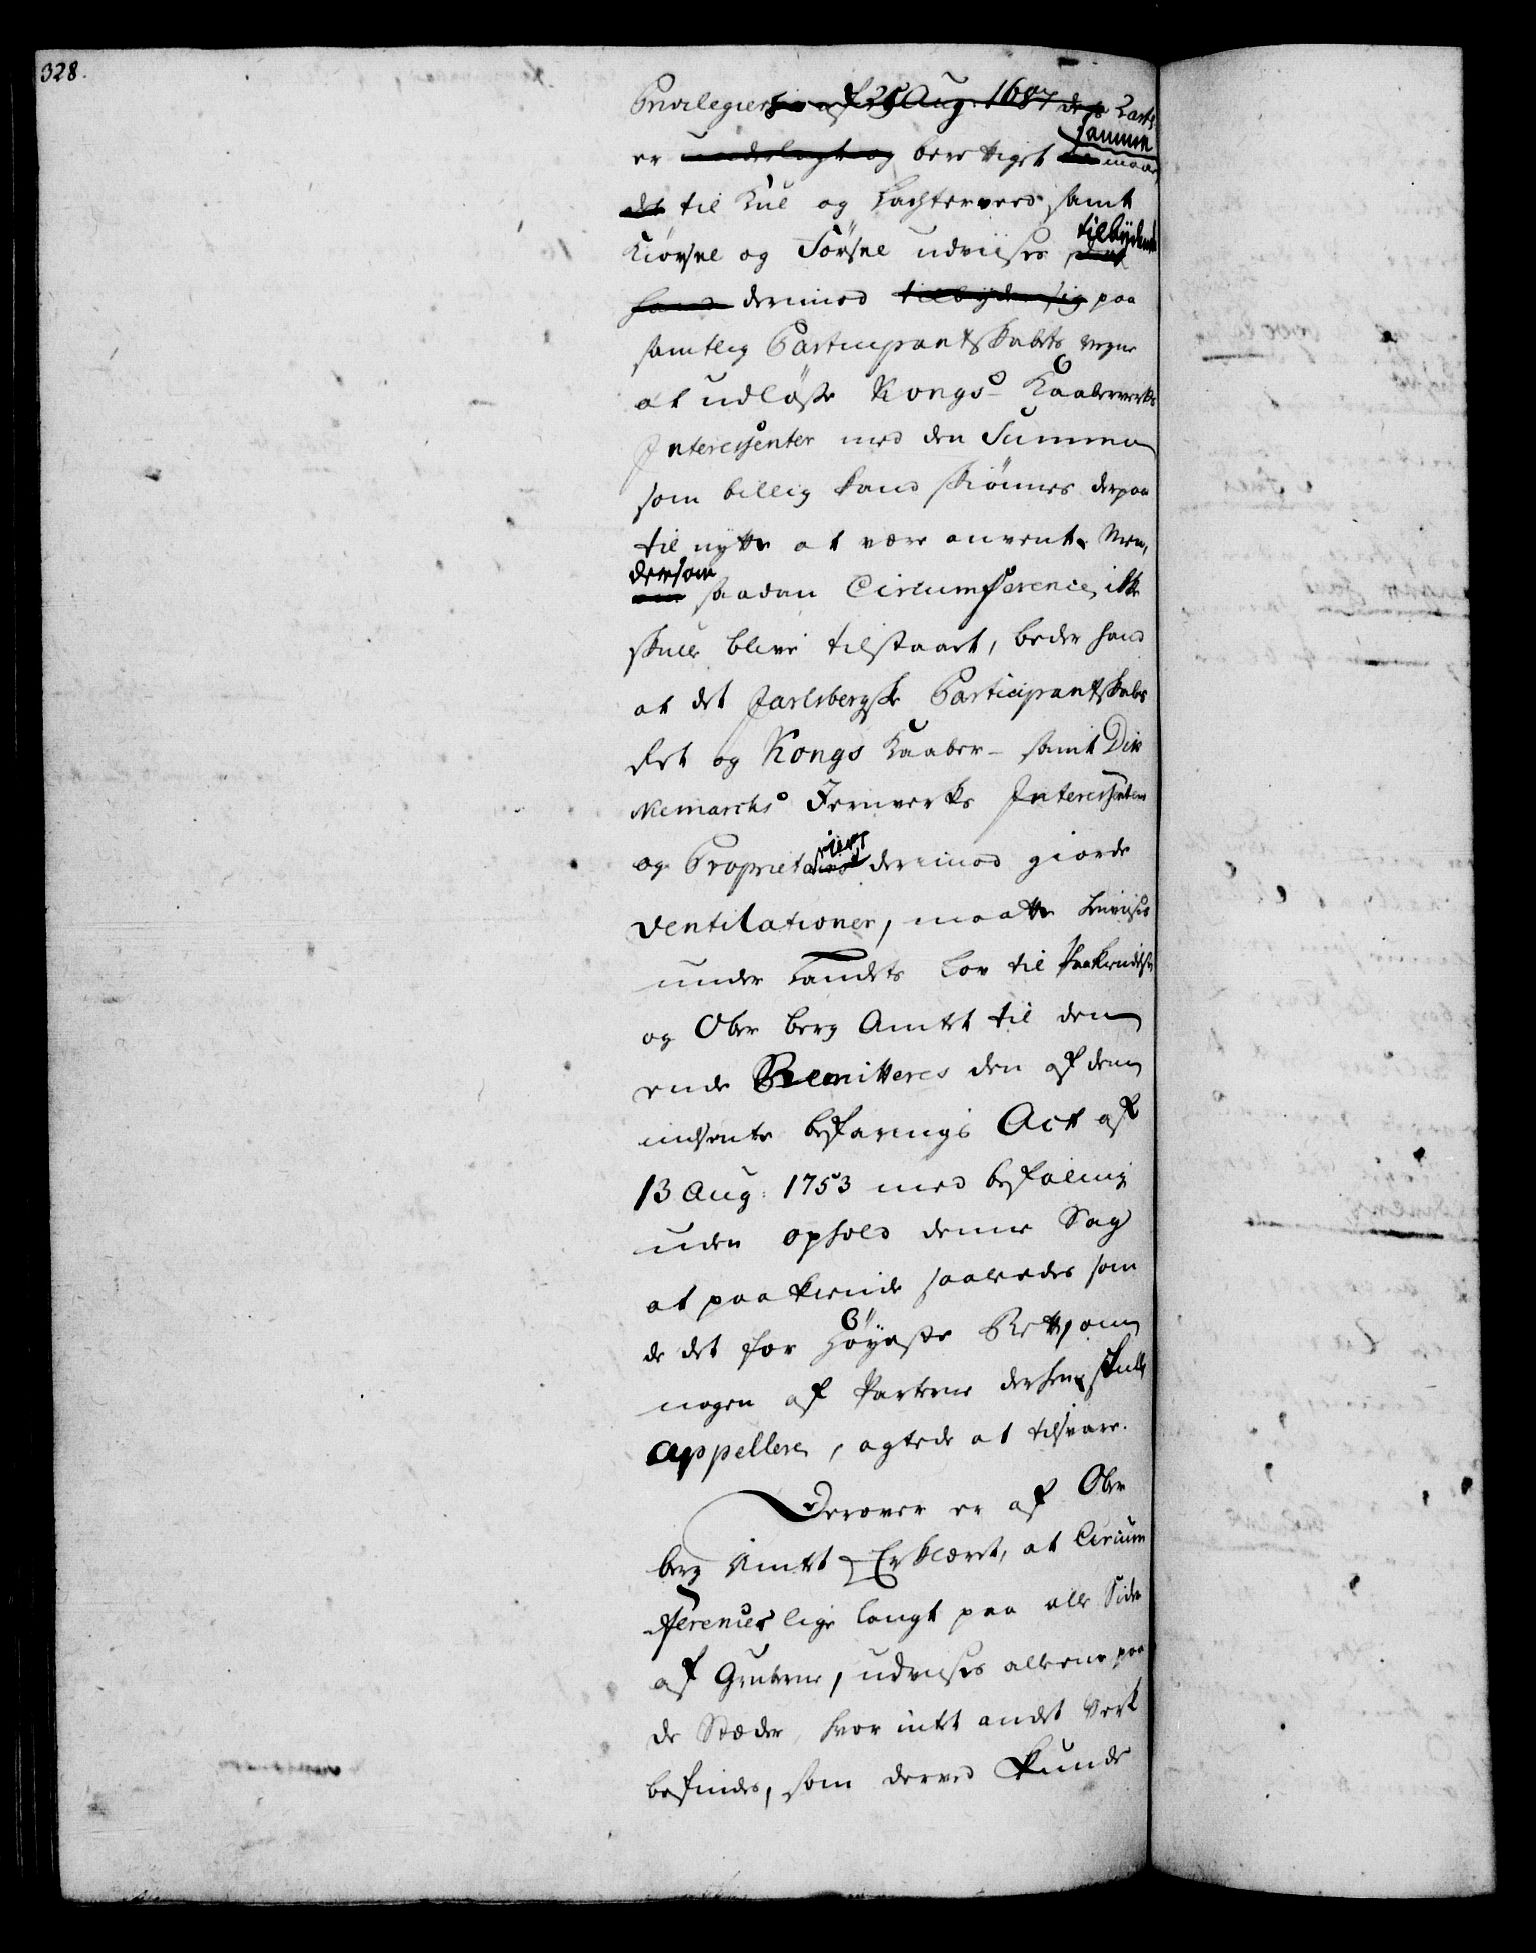 328.
Privilegier af 25 Aug: 1687 dets
er underlagt og berettiget samme maae
det til Kul og Lachterveed samt
Kiörsel og Försel udviises tilbydende
hand derimod tilbyder sig paa
samtlig Participantskabets vegne
at udlöse Kongs- Kaaberverks
Interessenter med den Summa
som billig kand skiönnes derpaa
til nytte at være anvent. Men,
dersom
om saadan Circumference ikke
skulle blive tilstaaet, beder hand
at det Jarlsbergske Participantskabs
Ret og Kongs Kaaber- samt Dik
kemarchs Jernverks Interessenters
og Proprietairers derimod giorde
Ventilationer, maatte henviises
under Landets Lov til Paakiendelse
og Ober Berg Amtet til den
ende Remitteres den af dem
indsente befarings Act af
13 Aug: 1753 med befaling
uden ophold denne Sag
at paakiende saaledes som
de det for Höyeste Rett, om
nogen af Parterne derhen skulle
appellere, agtede at tilsvare.
Derover er af Ober
berg Amtet Erklæret, at Circum
ferencer lige langt paa alle Sider
af Gruberne, udviises alleene paa
de Stæder, hvor intet andet Verk
befindes, som derved kunde